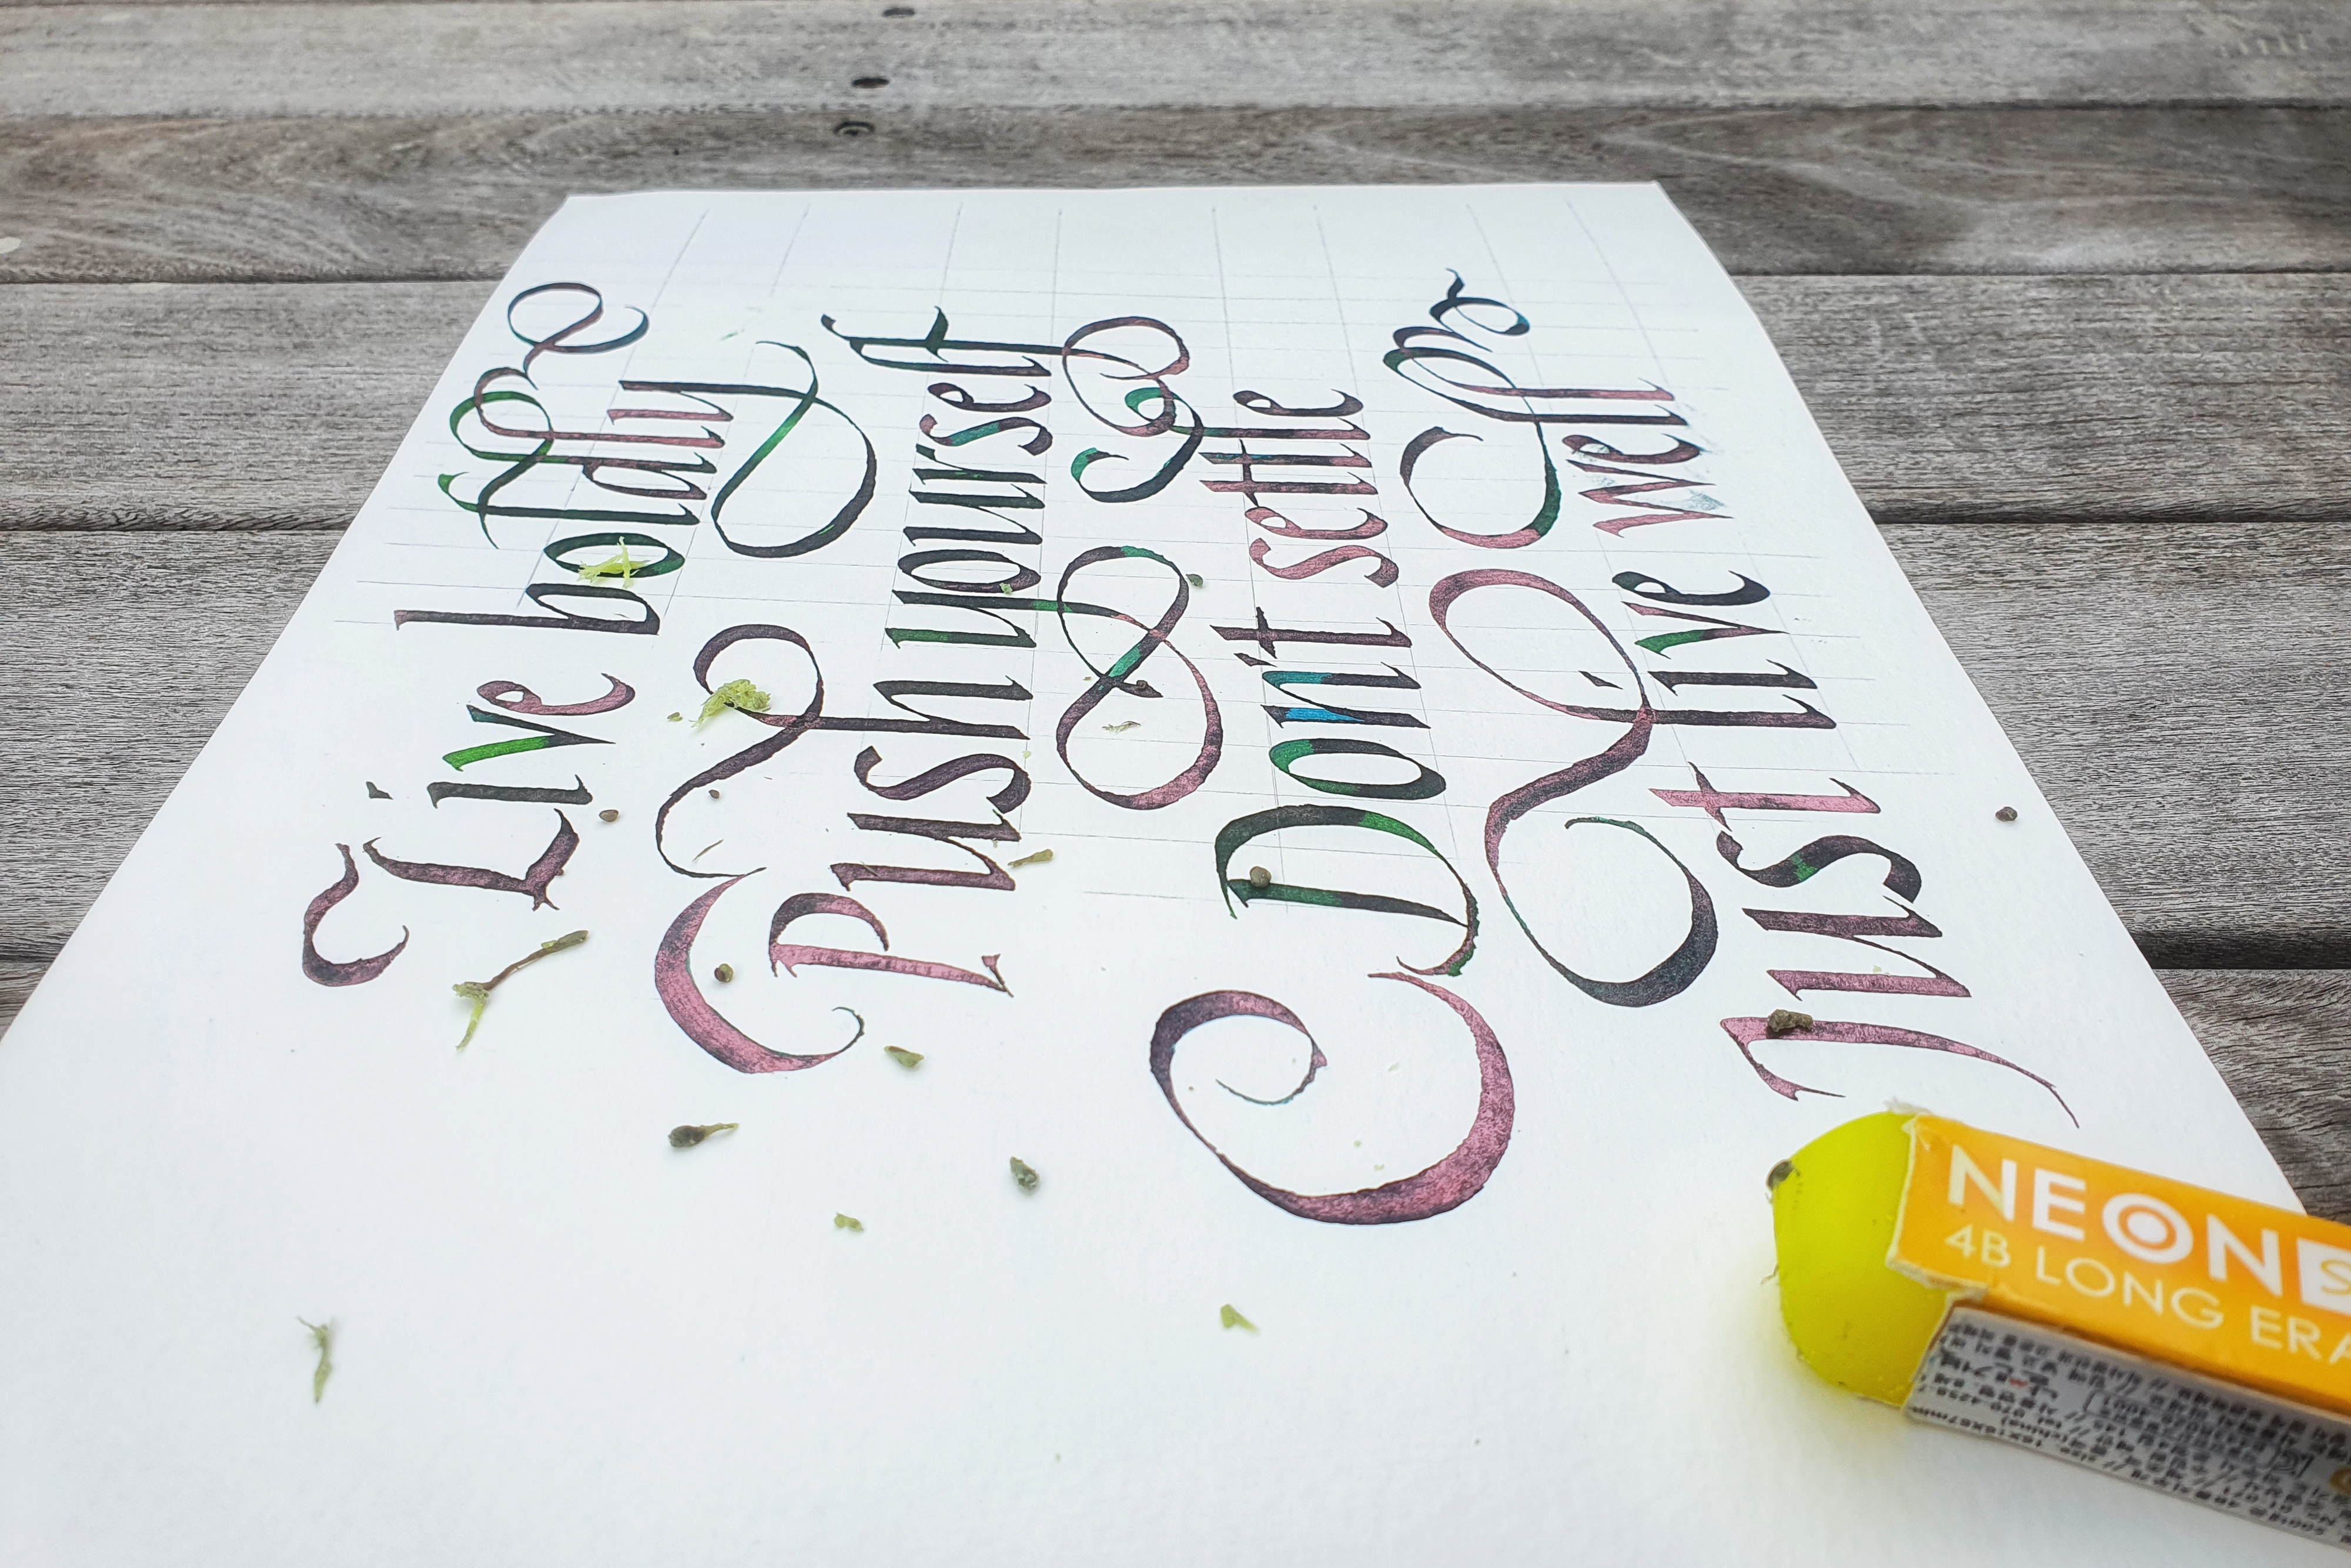 Live boldly
Push yourself
Don't settle
Just live well
NEON S
4B LONG ERA